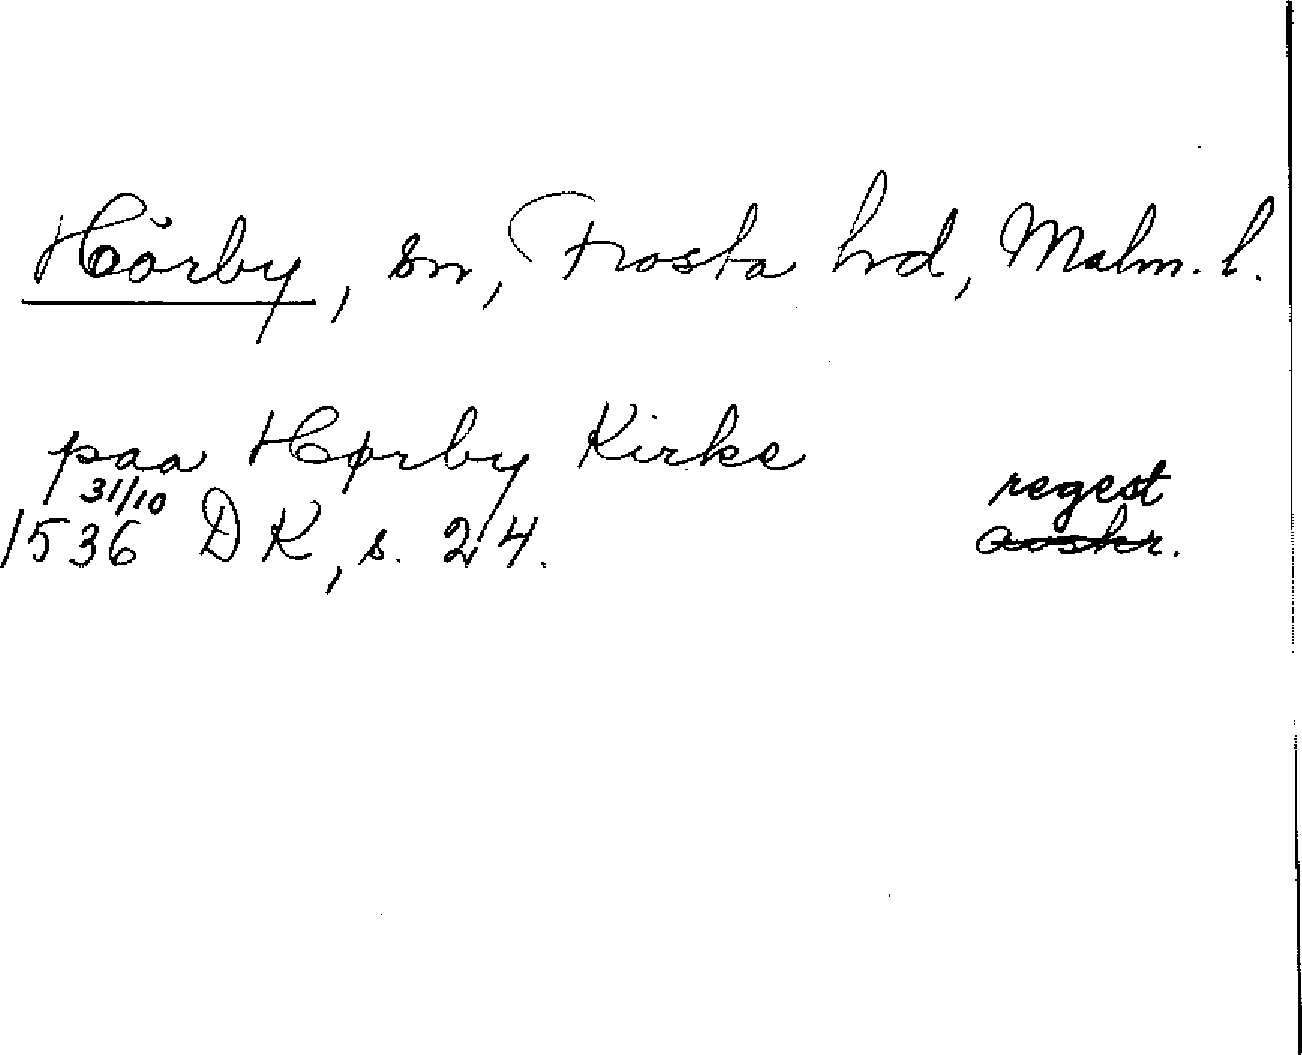 Hörby, sn, Frosta hd, Malm. l.
paa Hørby Kirke
31/10 regest
1536 DK, s. 24. avskr.